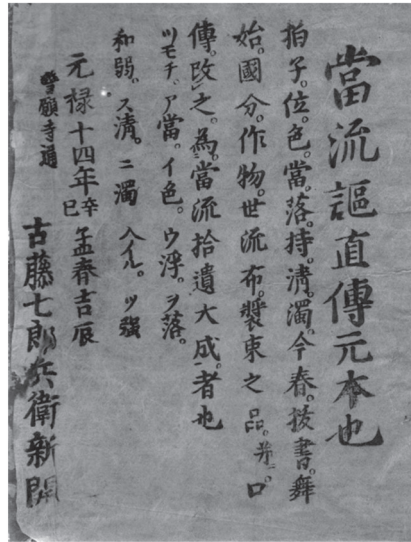 當流謳直傳元本也
拍子。位。色。當。落。持。清。濁。今春。拔書。舞
始。國分。作物。世流布。裝束之品。并口
傳。改之。為當流拾遺大成者也
ツモチ。ア當。イ色。ウ浮。ヲ落。
和弱。ス清。ニ濁 入イル。ツ強
元禄十四年辛巳孟春吉辰
誓願寺通 古藤七郎兵衛新開